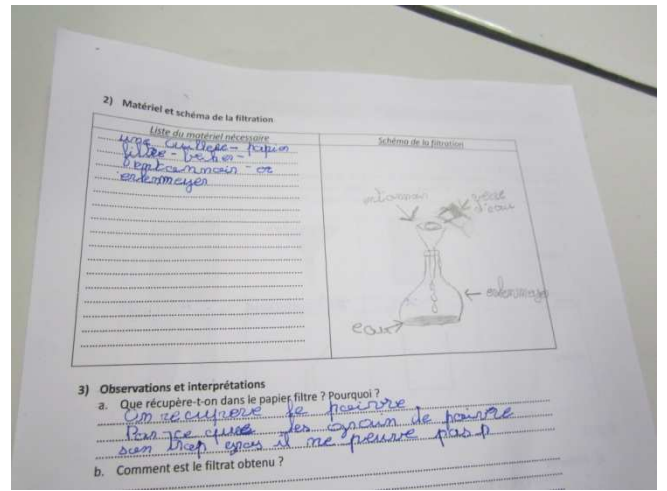 2) Matériel et schéma de la filtration
Liste du matériel nécessaire
Schéma de la filtration
une cuillere - papier
filtre - beher -
- et
erlenmeyer
entonnoir
d'eau
erlenmeyer
eau
3) Observations et interprétations
a. Que récupère-t-on dans le papier filtre ? Pourquoi ?
On recupere le poivre
Par ce que les grain de poivre
son trop gros il ne peuve pas p
b. Comment est le filtrat obtenu ?